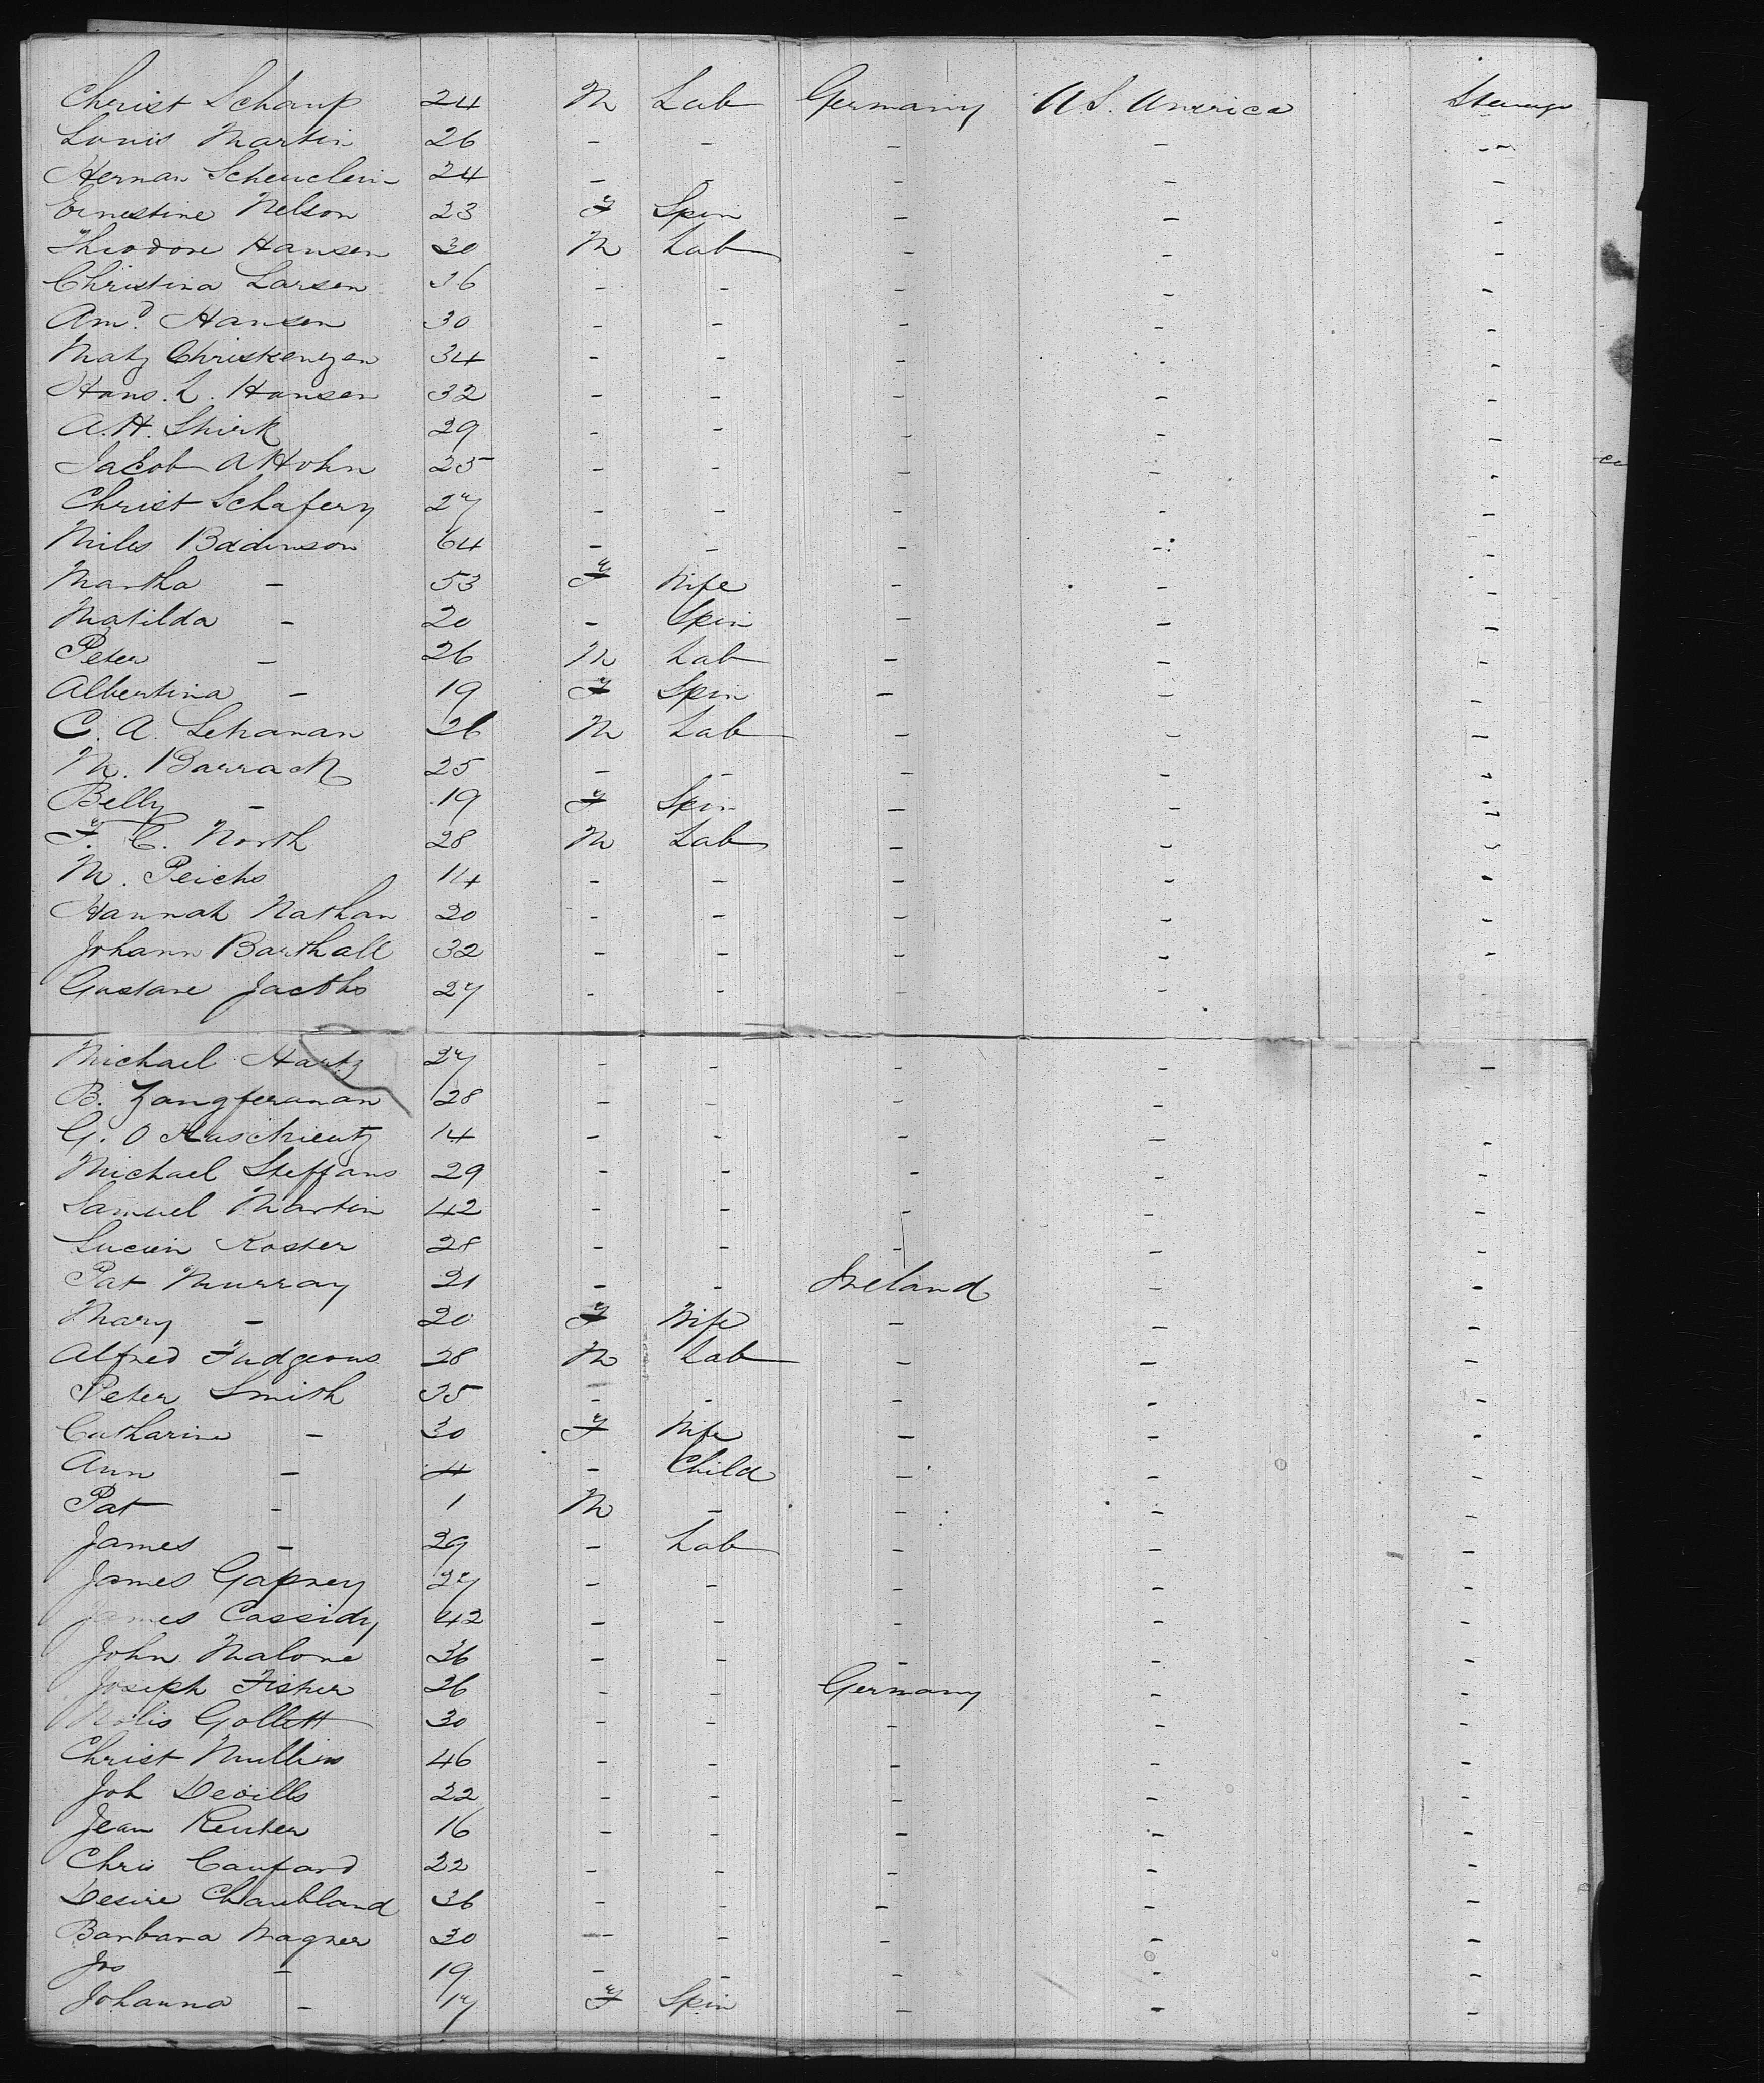 Christ Schaup 24 M Lab Germany U.S. America Steerage
Louis Martin 26 - - - - -
Herman Scheuclein 24 - - - - -
Ernestine Nelson 23 F Spin - - -
Theodore Hansen 30 M Lab - - -
Christina Larsen 36 - - - - -
Amd Hansen 30 - - - - -
Matz Christenzen 34 - - - - -
Hans. L. Hansen 32 - - - - -
A.H. Shirk 29 - - - - -
Jacob A Hohn 25 - - - - -
Christ Schafery 27 - - - - -
Miles Badinson 64 - - - - -
Martha - 53 F Wife - - -
Matilda - 20 - Spin - - -
Peter - 26 M Lab - - -
Albertina - 19 F Spin - - -
C. A. Lehanan 26 M Lab - - -
M. Barrack 25 - - - - -
Belly - 19 F Spin - - -
F. C. North 28 M Lab - - -
M. Peichs 14 - - - - -
Hannah Nathan 20 - - - - -
Johann Barthall 32 - - - - -
Gustave Jacobs 27 - - - - -
Michael Hartz 27 - - - - -
B. Zangferanan 28 - - - -
G. O 14 - - - - -
Michael Steffans 29 - - - - -
Samuel Martin 42 - - - - -
Lucien Koster 28 - - - - -
Pat Murray 21 - - Ireland - -
Mary - 20 F Wife - - -
Alfred Fudgeous 28 M Lab - - -
Peter Smith 35 - - - - -
Catharine - 30 F Wife - - -
Ann - 4 - Child - - -
Pat - 1 M - - - -
James - 29 - Lab - - -
James Gafney 27 - - - - -
James Cassidy 42 - - - - -
John Malone 36 - - - - -
Joseph Fisher 26 - - Germany - -
Gollett 30 - - - - -
Christ Mullins 46 - - - - -
Joh Devills 22 - - - - -
Jean Reuter 16 - - - - -
Chris Canfard 22 - - - - -
Desire Chaubland 36 - - - - -
Barbara Wagner 30 - - - - -
Jos - 19 - - - - -
Johanna - 17 F Spin - - -